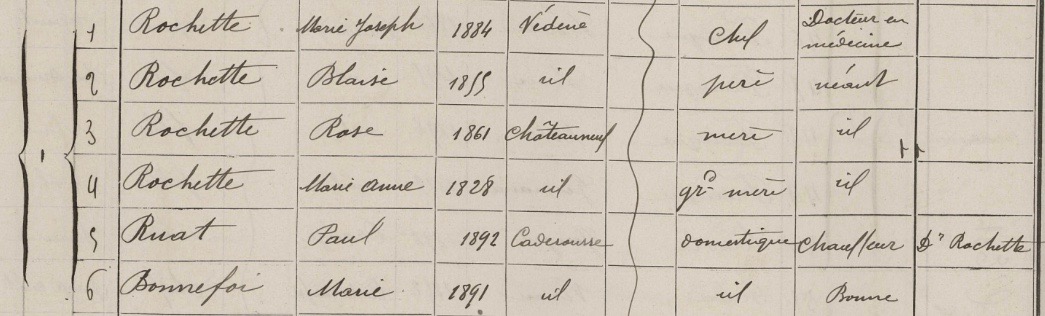 1 Rochette Marie Joseph 1884 Védène Chef Docteur en médecine
2 Rochette Blaise 1855 id père néant
3 Rochette Rose 1861 Châteauneuf mère id
4 Rochette Marie Anne 1828 id grd mère id
5 Ruat Paul 1892 Caderousse domestique Chauffeur Dr Rochette
6 Bonnefoi Marie 1891 id id Bonne